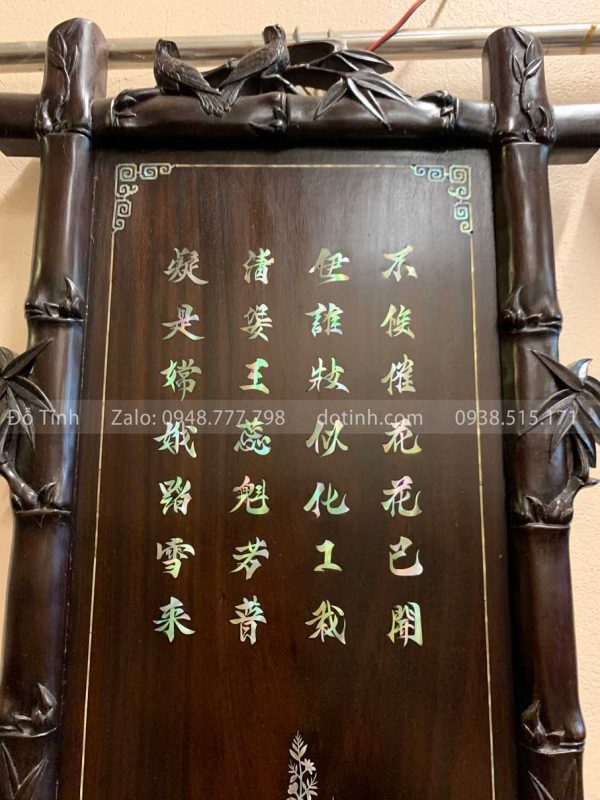 不俟催花花已開
伊誰似化工栽
清王蕊魁若昔
凝是嫦娥踏雪来
Đồ Tĩnh Zalo: 0948.777.798 dotinh.com 0938.515.171